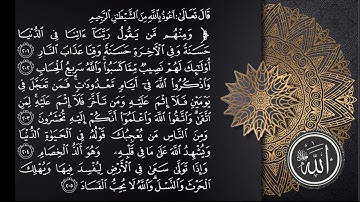 قَالَ تَعَالَىٰ: أَعُوذُ بِاللَّهِ مِنَ الشَّيْطَٰنِ الرَّجِيمِ
﴿ وَمِنْهُم مَّن يَقُولُ رَبَّنَآ ءَاتِنَا فِي الدُّنْيَا
حَسَنَةً وَفِي الْءَاخِرَةِ حَسَنَةً وَقِنَا عَذَابَ النَّارِ ٢٠١
أُوْلَٰٓئِكَ لَهُمْ نَصِيبٌ مِّمَّا كَسَبُوا۟ وَاللَّهُ سَرِيعُ الْحِسَابِ ٢٠٢
وَاذْكُرُوا۟ اللَّهَ فِيٓ أَيَّامٍ مَّعْدُودَٰتٍ فَمَن تَعَجَّلَ فِي
يَوْمَيْنِ فَلَآ إِثْمَ عَلَيْهِ وَمَن تَأَخَّرَ فَلَآ إِثْمَ عَلَيْهِ لِمَنِ
اتَّقَىٰ وَاتَّقُوا۟ اللَّهَ وَاعْلَمُوٓا۟ أَنَّكُمْ إِلَيْهِ تُحْشَرُونَ ٢٠٣
وَمِنَ النَّاسِ مَن يُعْجِبُكَ قَوْلُهُ فِي الْحَيَوٰةِ الدُّنْيَا
وَيُشْهِدُ اللَّهَ عَلَىٰ مَا فِي قَلْبِهِ وَهُوَ أَلَدُّ الْخِصَامِ ٢٠٤
وَإِذَا تَوَلَّىٰ سَعَىٰ فِي الْأَرْضِ لِيُفْسِدَ فِيهَا وَيُهْلِكَ
الْحَرْثَ وَالنَّسْلَ وَاللَّهُ لَا يُحِبُّ الْفَسَادَ ٢٠٥
الله